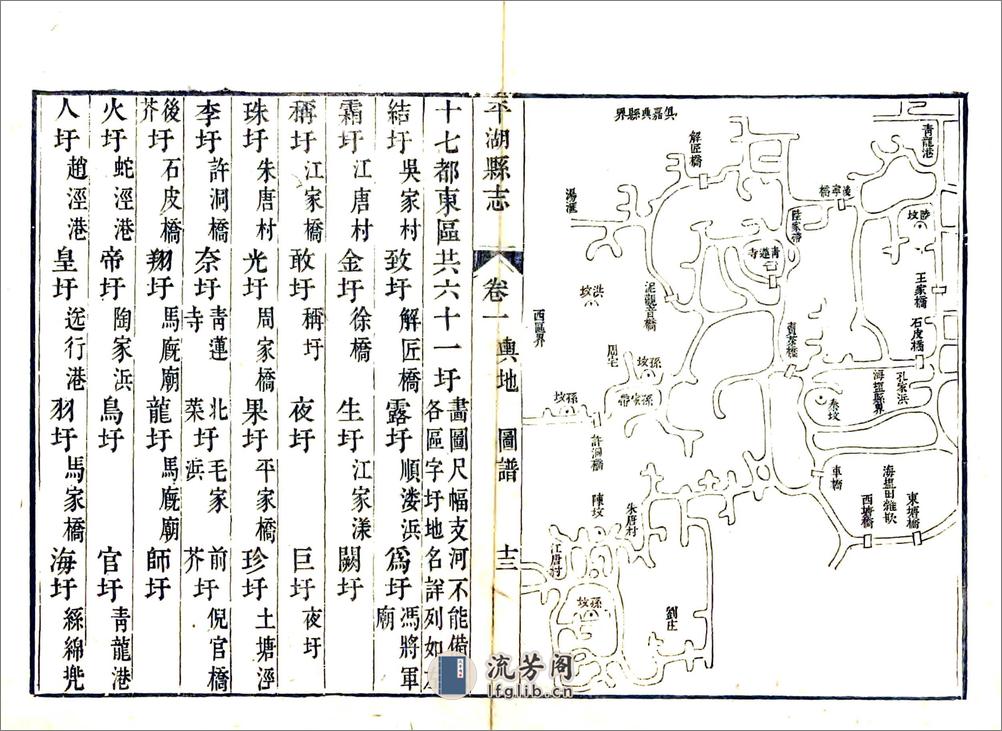 俱嘉興縣界
青龍港
解匠橋
陸家帶
陸坟
湯滙
青蓮寺
王家橋
洪坟
泥觀音橋
石皮橋
西區界
賣茶橋
周宅
孫坟
孫家帶
孔家浜
海鹽縣界
秦坟
孫坟
許洞橋
車橋
海鹽田雜散
東塘橋
西塘橋
陳坟
朱唐村
江唐村
孫坟
劉庄
平湖縣志 卷一 輿地 圖譜 十三
十七都東區共六十一圩 畫圖尺幅支河不能備
各區字圩地名詳列如左
結圩 吳家村 致圩 解匠橋 露圩 順淒浜 爲圩 馮將軍廟
霜圩 江唐村 金圩 徐橋 生圩 江家漾 闕圩
稱圩 江家橋 敢圩 稱圩 夜圩 巨圩 夜圩
珠圩 朱唐村 光圩 周家橋 果圩 平家橋 珍圩 土塘涇
李圩 許洞橋 奈圩 青蓮寺 北菜圩 毛家浜 前芥圩 倪官橋
後芥圩 石皮橋 翔圩 馬廐廟 龍圩 馬廐廟 師圩
火圩 蛇涇港 帝圩 陶家浜 鳥圩 官圩 青龍港
人圩 趙涇港 皇圩 行港 羽圩 馬家橋 海圩 絲綿兜
流芳阁
lfglib.cn